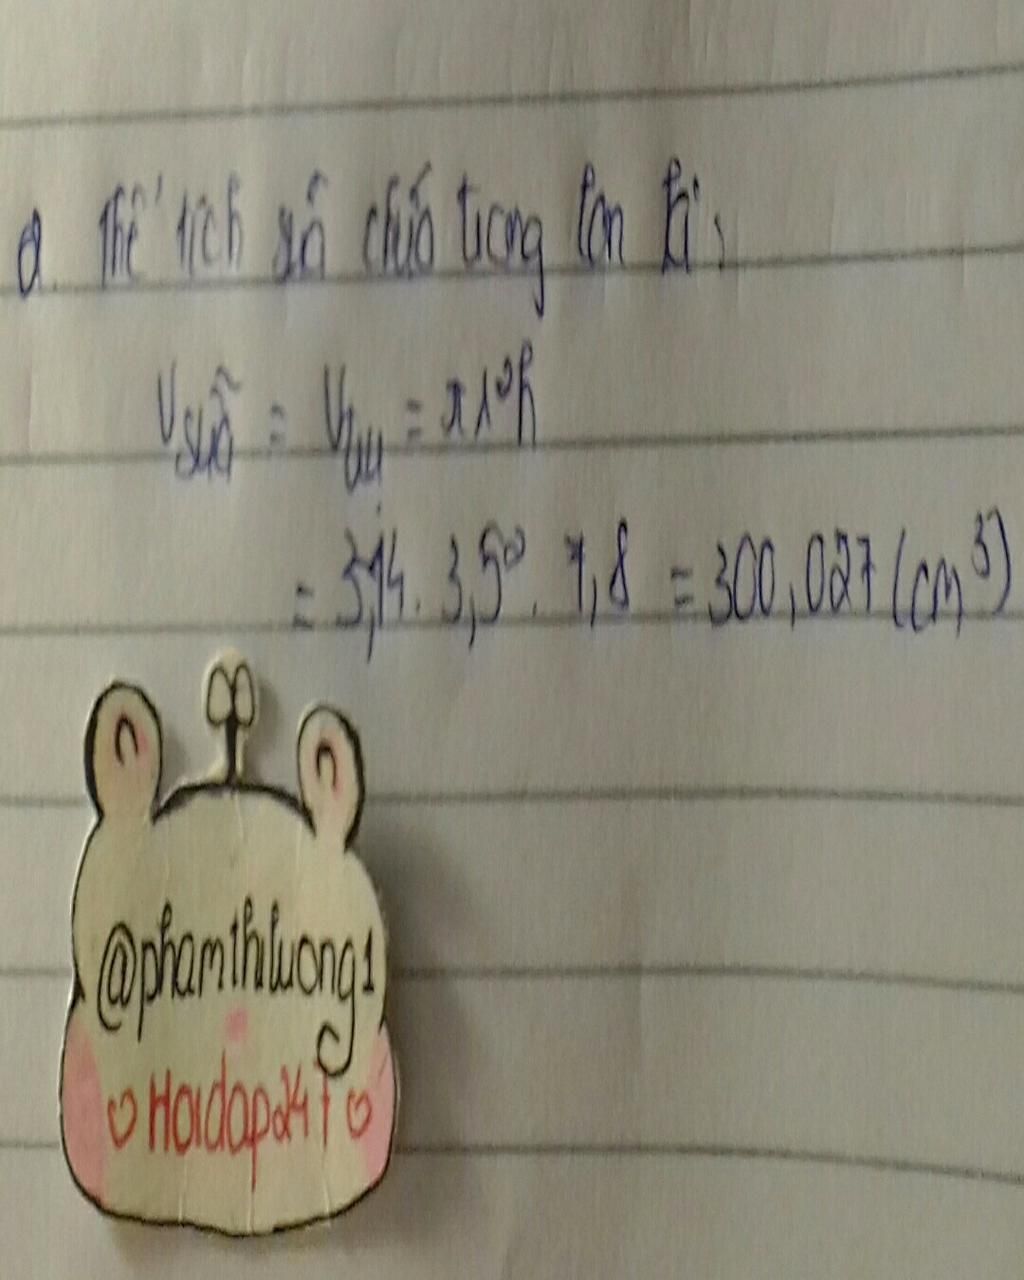 a. Thể tích sữa chứa trong lon là:
V sữa = V trụ = πr²h
= 3,14 . 3,5² . 7,8 = 300,027 (cm³)
@phamthiluong1
♡ Hoidap247 ♡